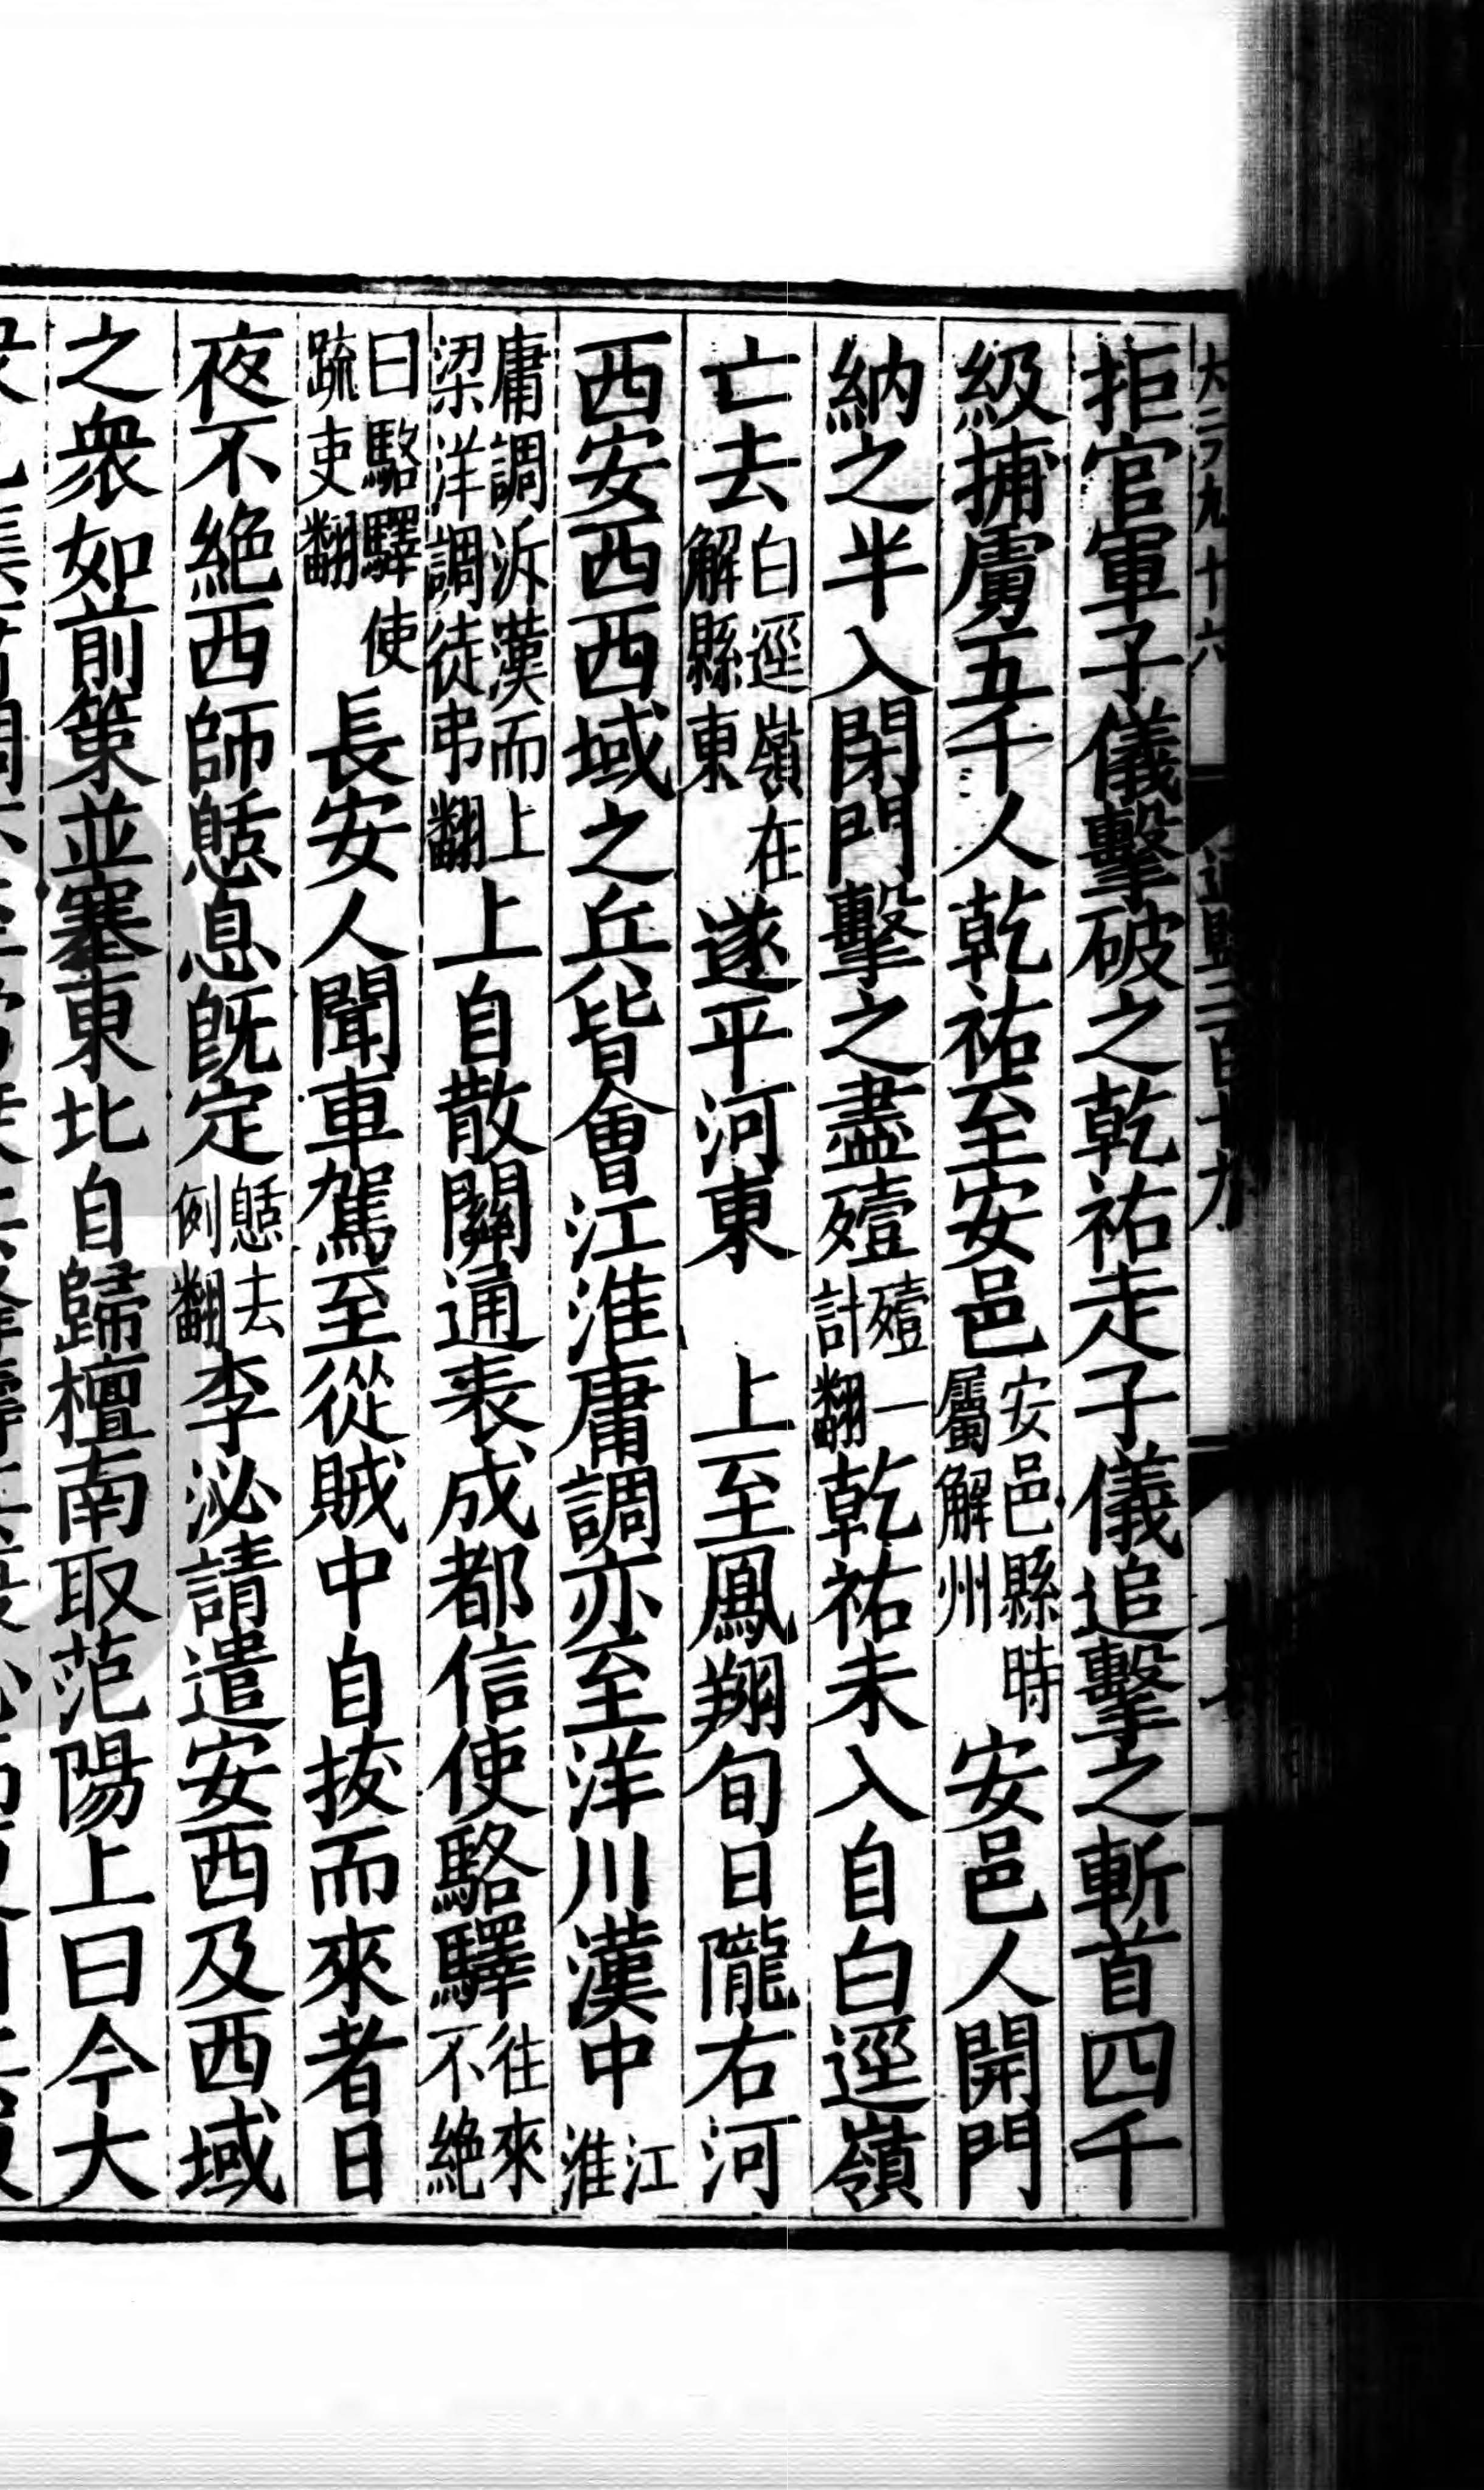 拒官軍子儀擊破之乾祐走子儀追擊之斬首四千
級捕虜五千人乾祐至安邑安邑縣時屬解州安邑人開門
納之半入閉門擊之盡殪殪一計翻乾祐未入自白逕嶺
亡去白逕嶺在解縣東遂平河東　上至鳳翔旬日隴右河
西安西西域之兵皆會江淮庸調亦至洋川漢中江淮
庸調泝漢而上梁洋調徒弔翻上自散關通表成都信使駱驛往來不絶
曰駱驛使疏吏翻長安人聞車駕至從賊中自拔而來者日
夜不絶西師憩息旣定憩去例翻李泌請遣安西及西域
之衆如前策並塞東北自歸檀南取范陽上曰今大